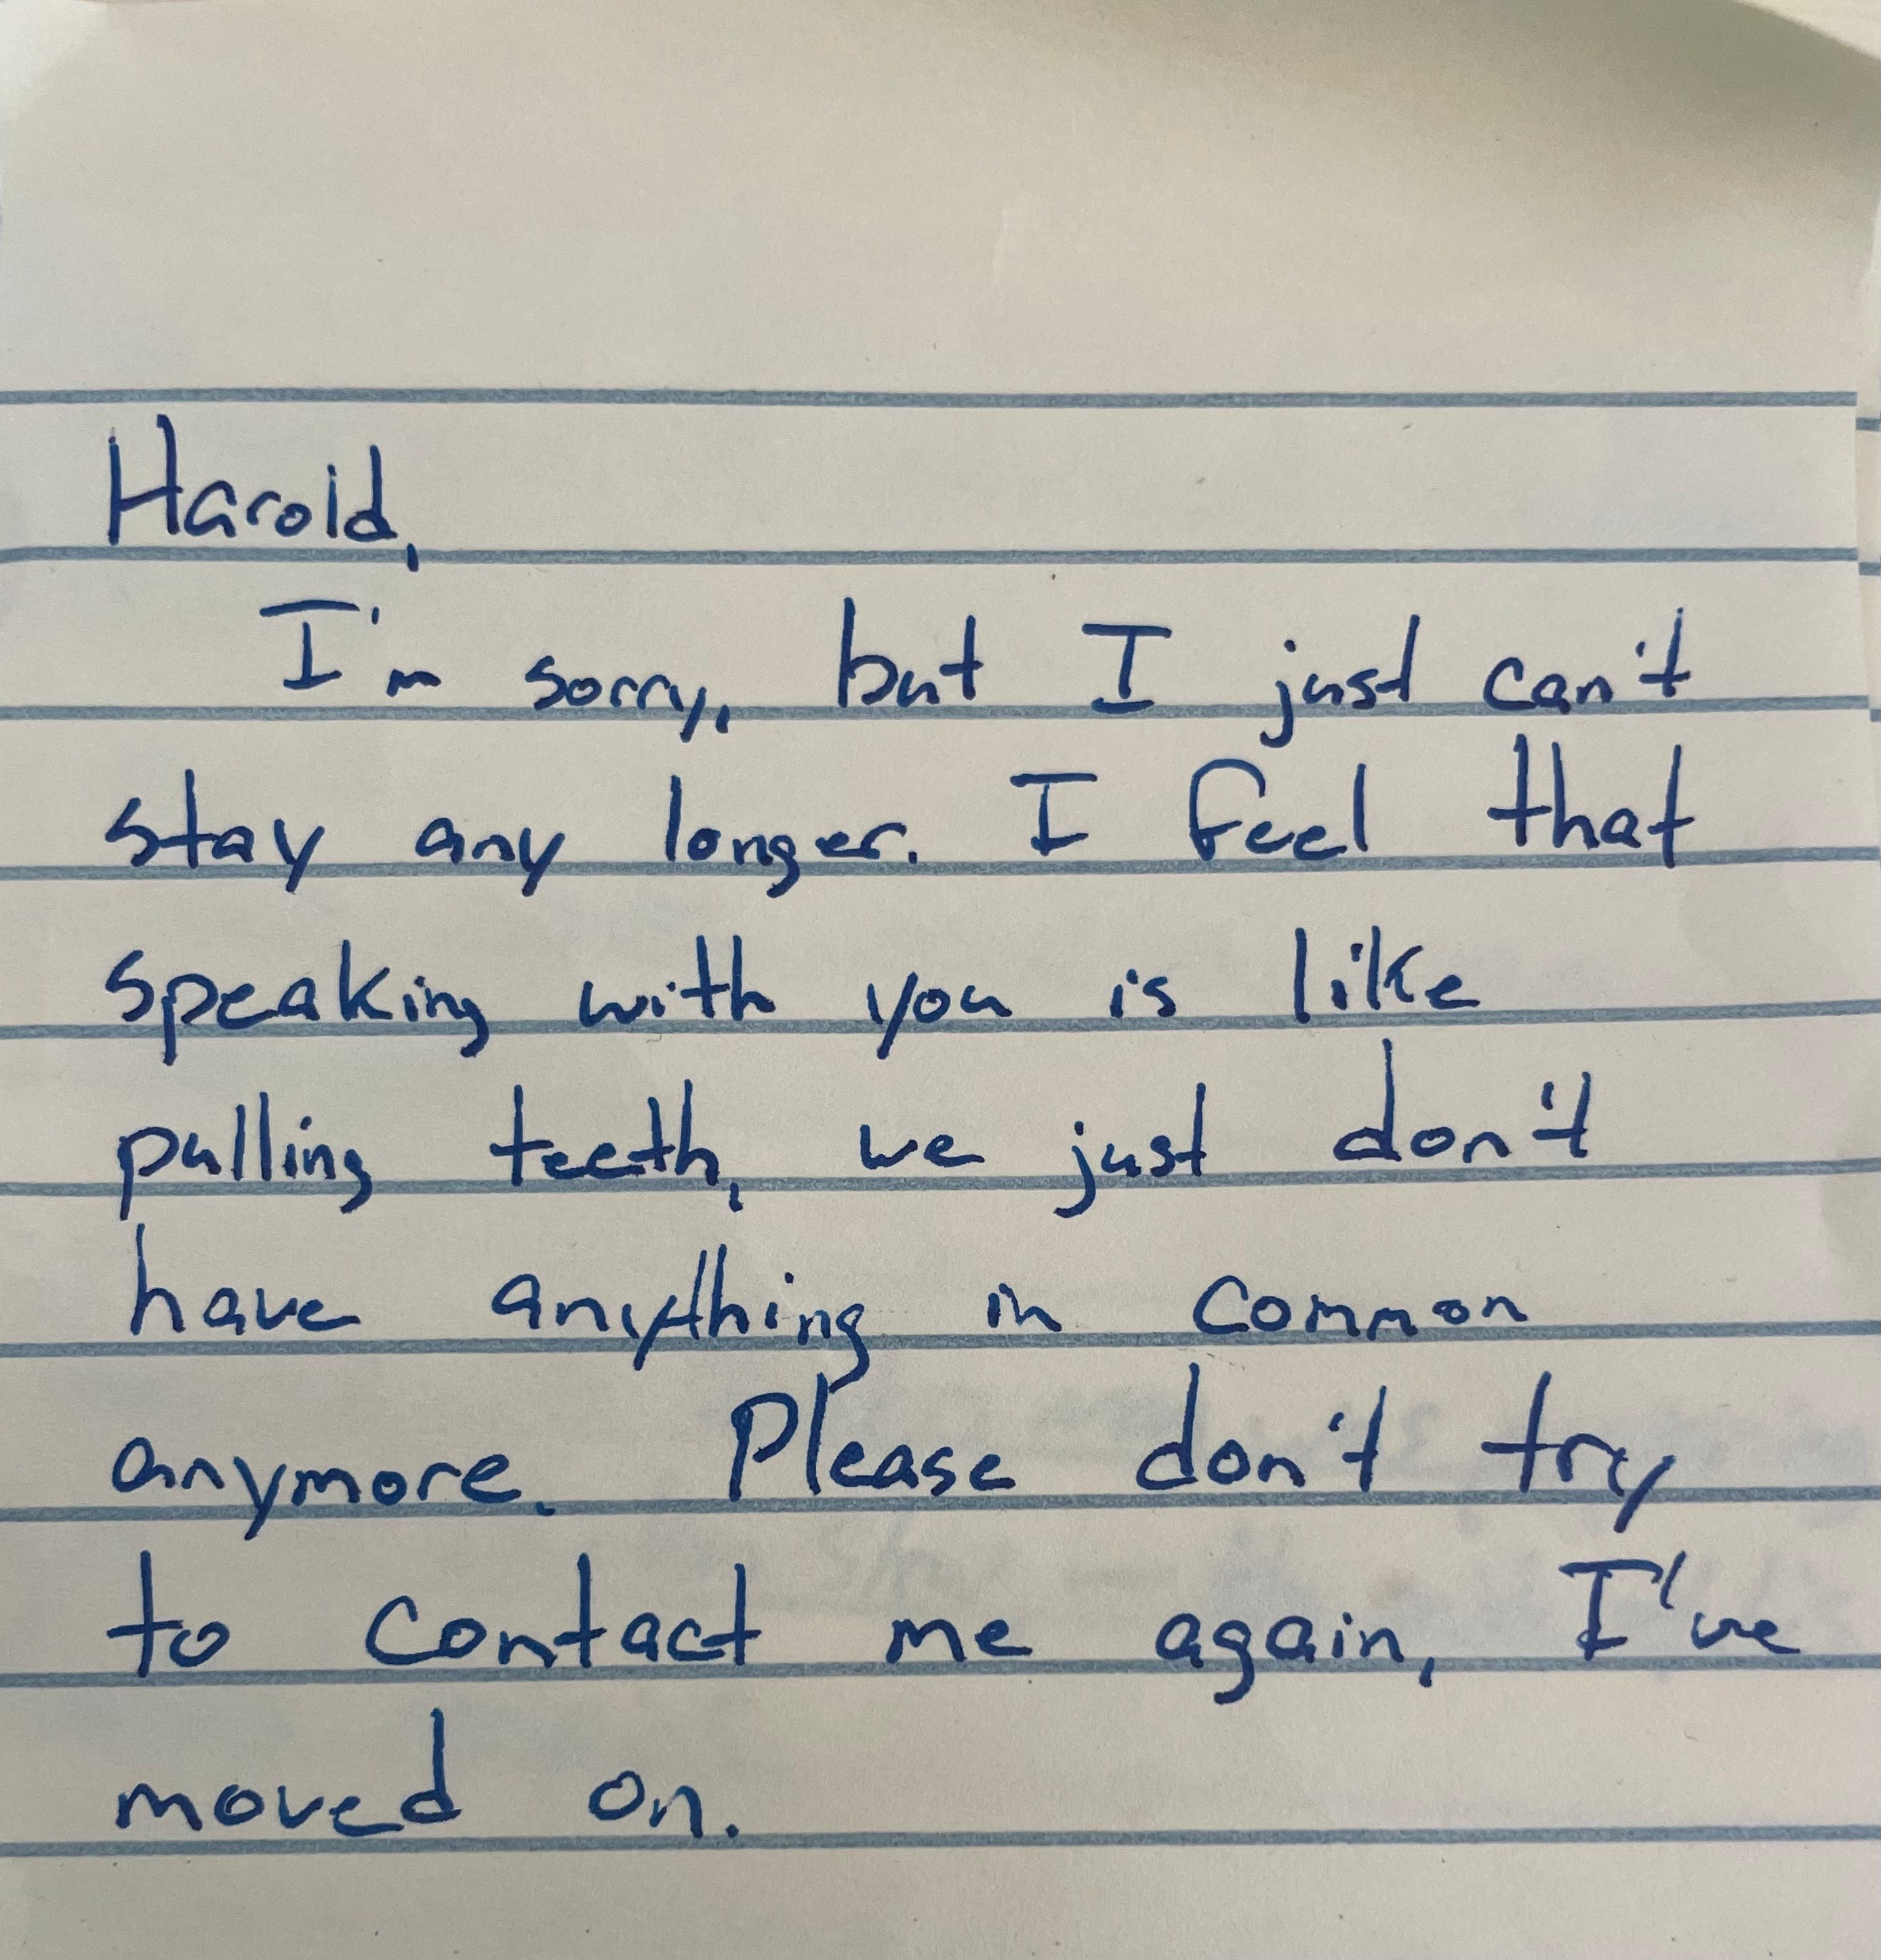 Harold,
I'm sorry, but I just can't
stay any longer. I feel that
speaking with you is like
pulling teeth, we just don't
have anything in common
anymore. Please don't try
to contact me again, I've
moved on.